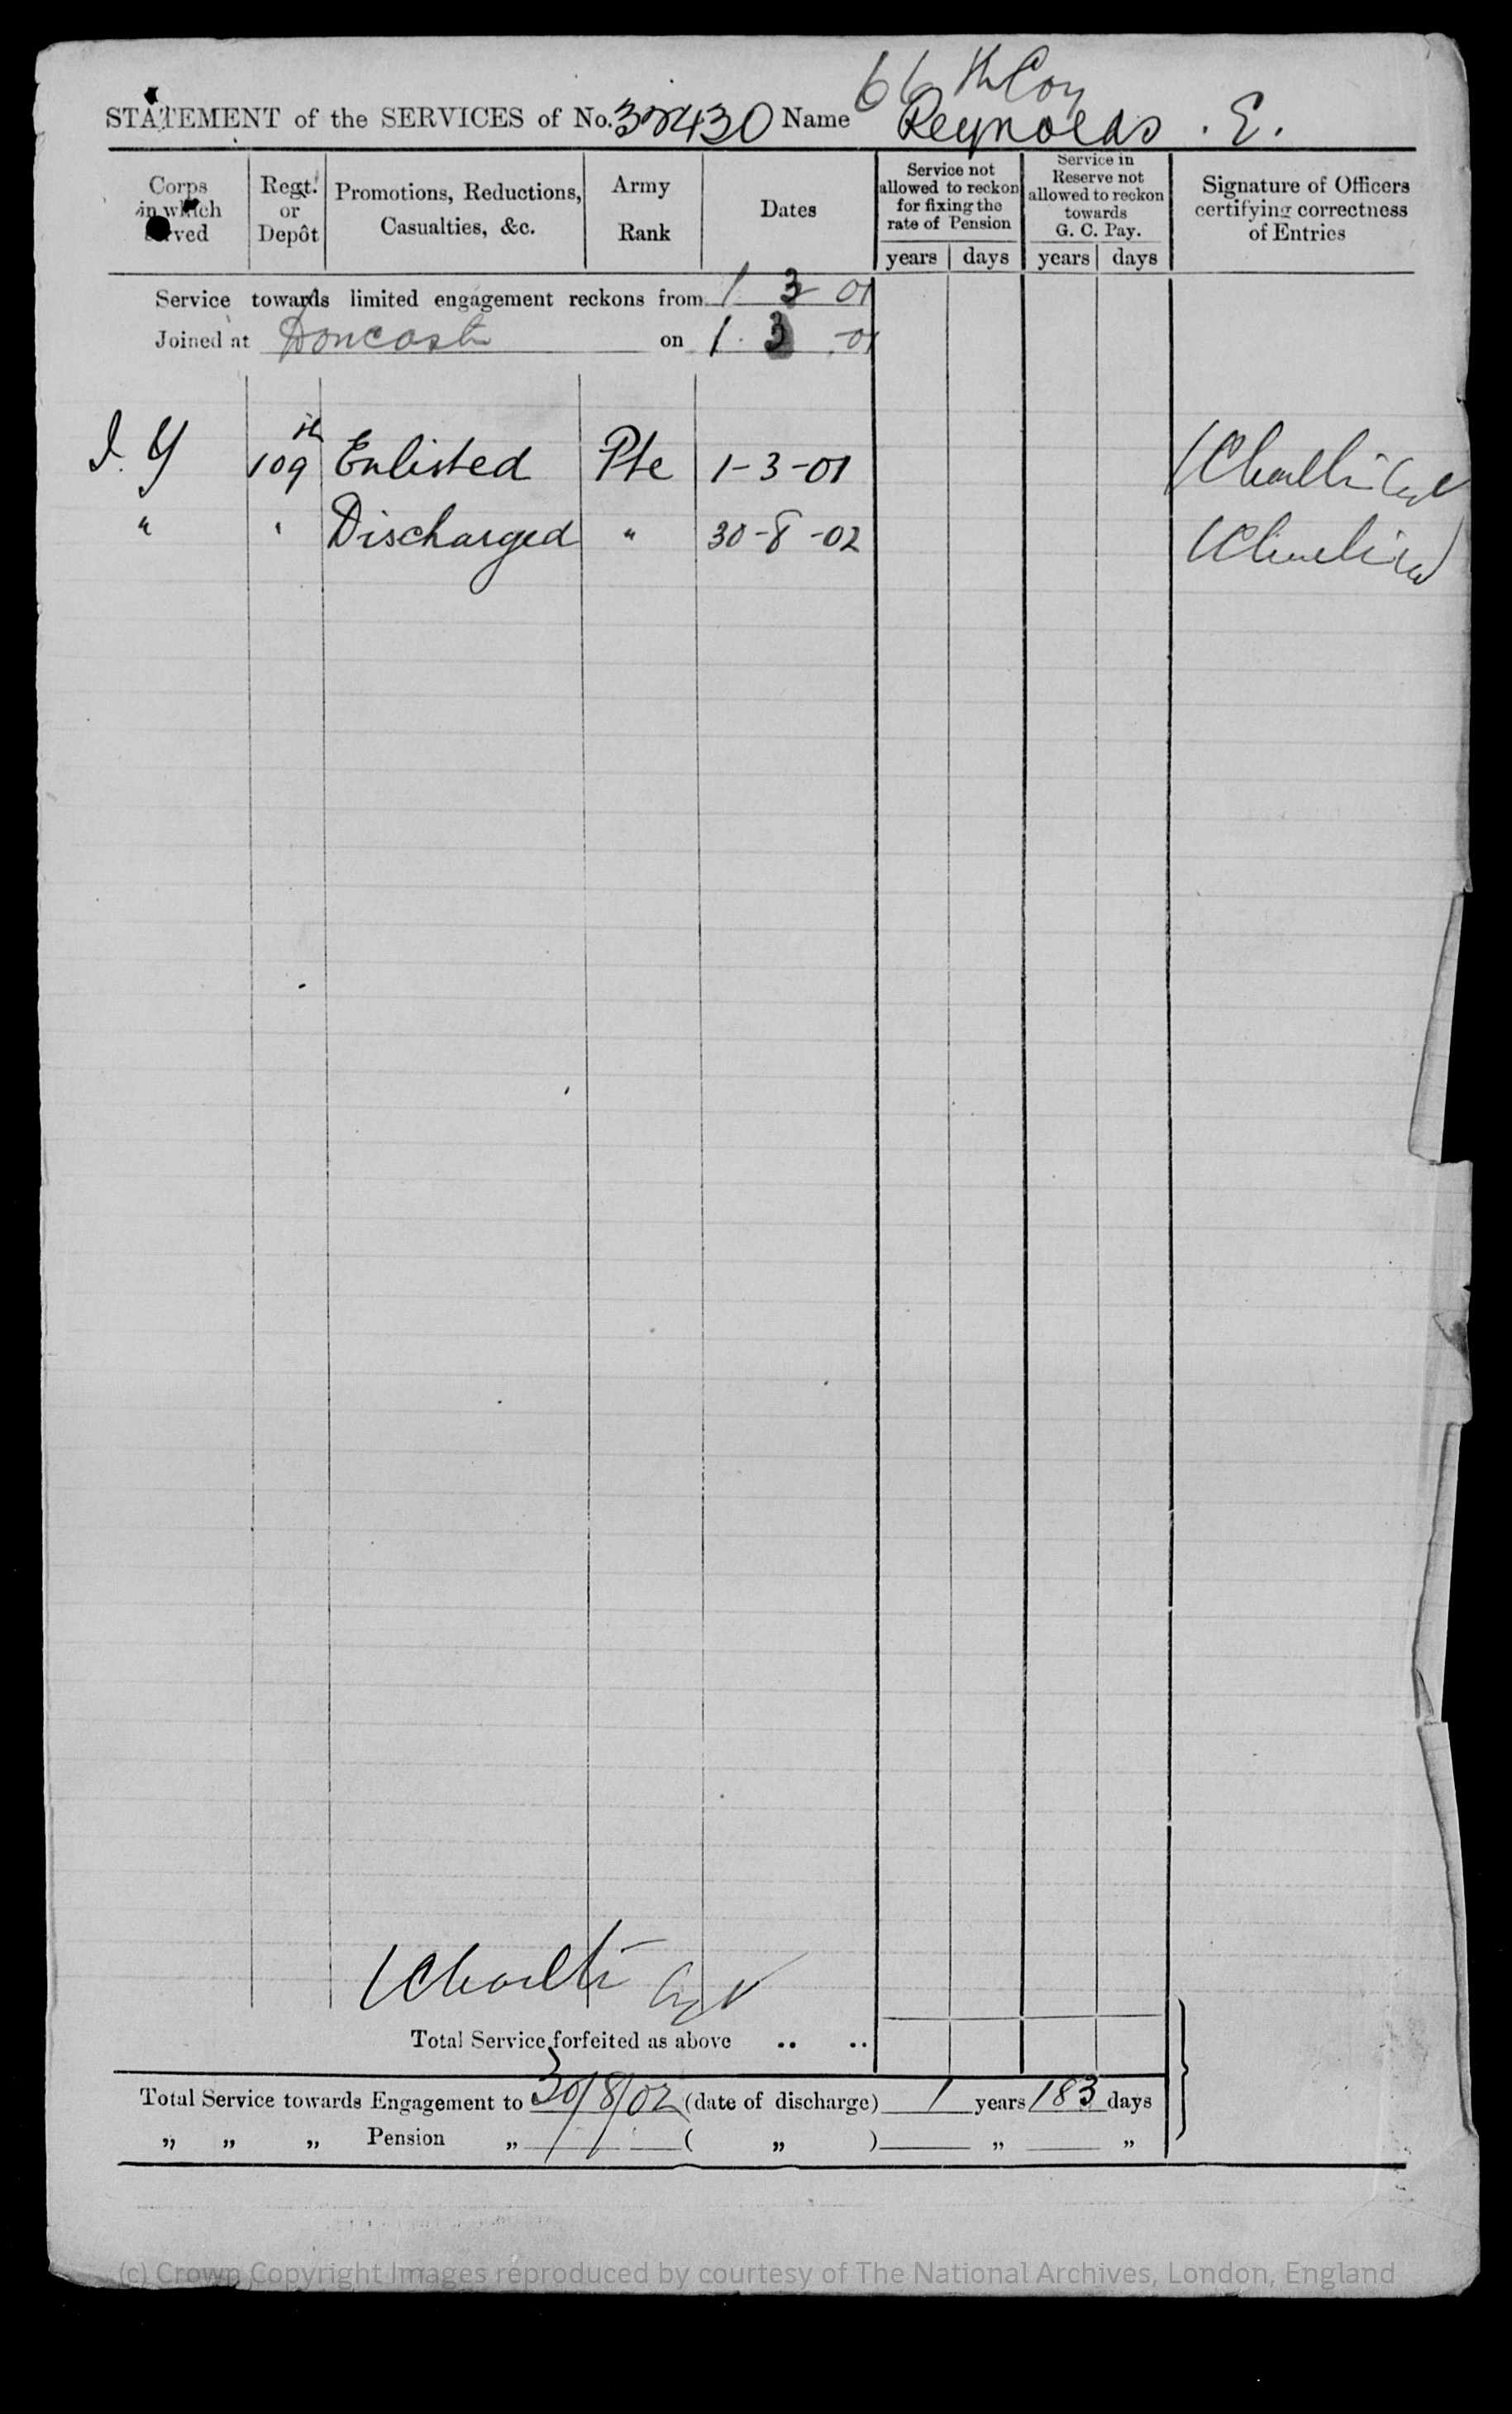 66th Coy
STATEMENT of the SERVICES of No. 32430 Name Reynolds . E.
Corps in which served
Regt. or Depôt
Promotions, Reductions, Casualties, &c.
Army Rank
Dates
Service not allowed to reckon for fixing the rate of Pension
years days
Service in Reserve not allowed to reckon towards G. C. Pay.
years days
Signature of Officers certifying correctness of Entries
Service towards limited engagement reckons from 1 3 01
Joined at Doncaster on 1. 3 -01
I. Y 109th Enlisted Pte 1-3-01
" " Discharged " 30-8-02
Total Service forfeited as above .. ..
Total Service towards Engagement to 30/8/02 (date of discharge) 1 years 183 days
„ „ „ Pension „ ( „ ) „ „
(c) Crown Copyright Images reproduced by courtesy of The National Archives, London, England